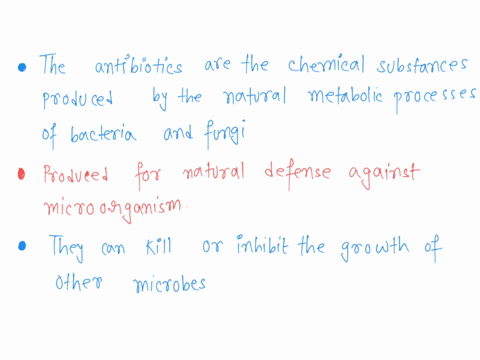 • The antibiotics are the chemical substances
produced by the natural metabolic processes
of bacteria and fungi
• Produced for natural defense against
microorganism.
• They can kill or inhibit the growth of
other microbes